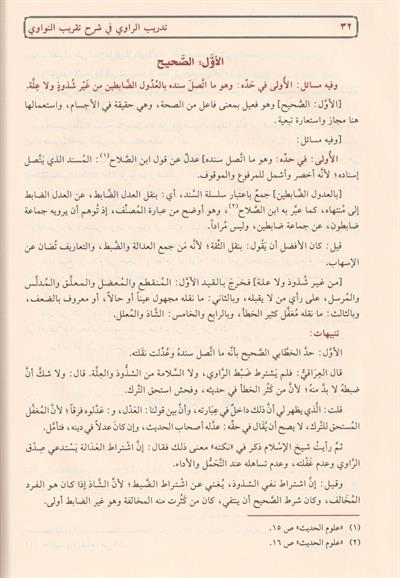 ٣٢
تدريب الراوي في شرح تقريب النواوي
الأوَّل: الصَّحيح
وفيه مسائل: الأُولى في حَدِّه: وهو ما اتَّصلَ سنده بالعُدول الضَّابطين من غَيْر شُذوذٍ ولا عِلَّة.
[الأوَّل: الصَّحيح] وهو فعيل بمعنى فاعل من الصحة، وهي حقيقة في الأجسام، واستعمالها
هنا مجاز واستعارة تبعية.
[وفيه مسائل:
الأُولى: في حدِّه: وهو ما اتَّصل سنده] عدلٌ عن قول ابن الصَّلاح(١): المُسند الذي يَتَّصل
إسناده؛ لأنَّه أخصر وأشمل للمرفوع والموقوف.
[بالعدول الضَّابطين] جمعٌ باعتبار سلسلة السَّند، أي: بنقل العدل الضَّابط، عن العدل الضابط
إلى مُنتهاه، كما عبَّر به ابن الصَّلاح(٢)، وهو أوضح من عبارة المُصنِّف، إذ تُوهم أن يرويه جماعة
ضابطون، عن جماعة ضابطين، وليس مُراداً.
قيل: كان الأفضل أن يَقُول: بنقل الثِّقة؛ لأنَّه مَن جمع العدالة والضَّبط، والتعاريف تُصَان عن
الإسهاب.
[من غير شُذوذ ولا علة] فخرجَ بالقيد الأوَّل: المُنقطع والمُعضل والمعلَّق والمُدلَّس
والمُرسل، على رأي من لا يقبله، وبالثاني: ما نقله مجهول عيناً أو حالاً، أو معروف بالضعف،
وبالثالث: ما نقله مُغفَّل كثير الخطأ، وبالرابع والخامس: الشَّاذ والمُعلل.
تنبيهات:
الأوَّل: حدَّ الخطَّابي الصَّحيح بأنَّه ما اتَّصل سندهُ وعُدِّلت نقَلَته.
قال العِرَاقيُّ: فلم يَشترط ضَبْط الرَّاوي، ولا السلامة من الشُّذوذ والعِلَّة. قال: ولا شكَّ أنَّ
ضبطهُ لا بدَّ منهُ؛ لأنَّ من كَثُر الخطأ في حديثه، وفحش استحق التَّرك.
قلت: الَّذي يظهر لي أنَّ ذلك داخلٌ في عِبَارته، وأنَّ بين قولنا: العَدْل، و: عَدَّلوه فرقاً؛ لأنَّ المُغفَّل
المستحق للتَّرك، لا يصح أن يُقَال في حقِّه: عدَّله أصحاب الحديث، وإن كان عدلاً في دينه، فتأمَّل.
ثمَّ رأيتُ شيخ الإسْلام ذكر في «نكته» معنى ذلك فقال: إنَّ اشتراط العَدَالة يَستدعي صِدْق
الرَّاوي وعدم غَفْلته، وعدم تساهله عند التَّحَمُّل والأداء.
وقيل: إنَّ اشتراط نفي الشذوذ، يُغني عن اشتراط الضَّبط؛ لأنَّ الشَّاذ إذا كان هو الفرد
المُخَالف، وكان شرط الصَّحيح أن ينتفي، كان من كَثُرت منه المخالفة وهو غير الضابط أولى.
(١) «علوم الحديث» ص ١٥.
(٢) «علوم الحديث» ص ١٦.